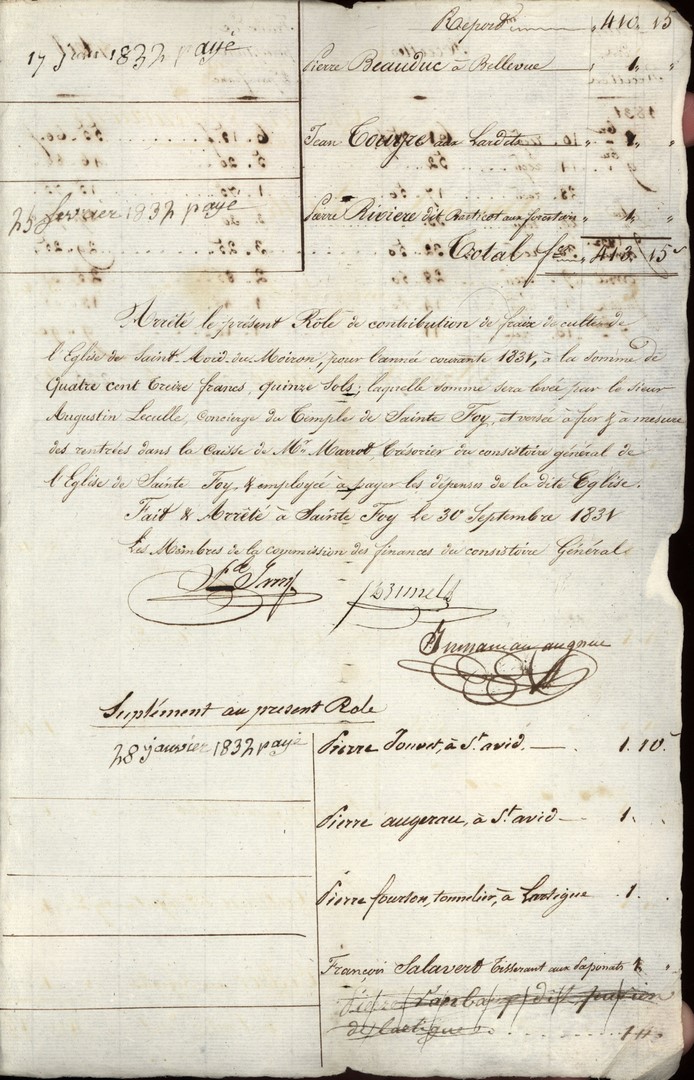 Report 410. 15
17 Juin 1832 payé
Pierre Beauduc à Bellevue 1 "
Jean aux Lardets 1 "
25 fevrier 1832 payé
Pierre Riviere dit aux 1 "
Total fcs 413. 15 s
Arrêté le présent Rôle de contribution de fraix de culte de
l'Eglise de Saint Avid-du-Moiron, pour l'année courante 1831, à la somme de
Quatre cent treize francs, quinze Sols; laquelle somme sera levée par le sieur
Augustin Leculle, Concierge du Temple de Sainte Foy, et versée à fur & à mesure
des rentrées dans la Caisse de Mr. Marrot, trésorier du consistoire général de
l'Eglise de Sainte Foy, & employée à payer les dépenses de la dite Eglise.
Fait & Arrêté à Sainte Foy le 30 Septembre 1831
Les Membres de la commission des finances du consistoire Général
Brunel
Suplément au present Role
28 janvier 1832 payé
Pierre Jouvet, à St. avid. 1. 10.
Pierre augerau, à St avid 1.
Pierre fourton, tonnelier, à Lartigue 1.
François Salavert Tisserant aux 1 "
dit
de Lartigue 1 "